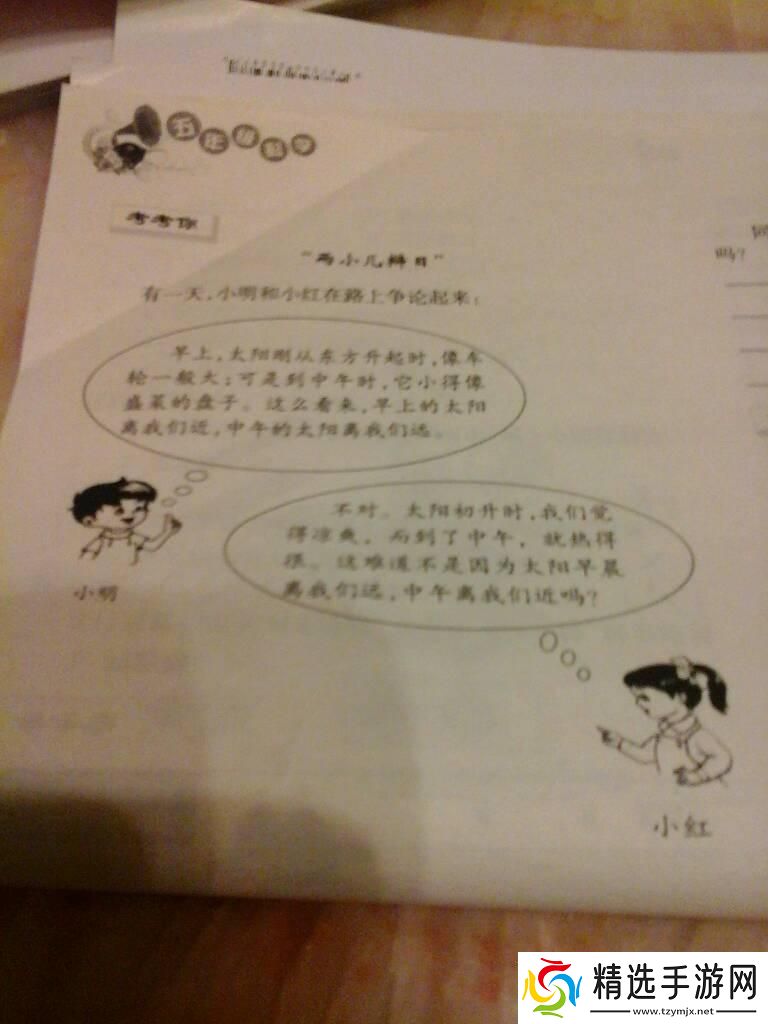 五年级科学
考考你
"两小儿辩日"
有一天,小明和小红在路上争论起来:
早上,太阳刚从东方升起时,像车
轮一般大;可是到中午时,它小得像
盛菜的盘子。这么看来,早上的太阳
离我们近,中午的太阳离我们远
不对。太阳初升时,我们觉
得凉爽,而到了中午,就热得
很。这难道不是因为太阳早晨
离我们远,中午离我们近吗?
小明
小红
吗?
精选手游网
www.tzymjx.net